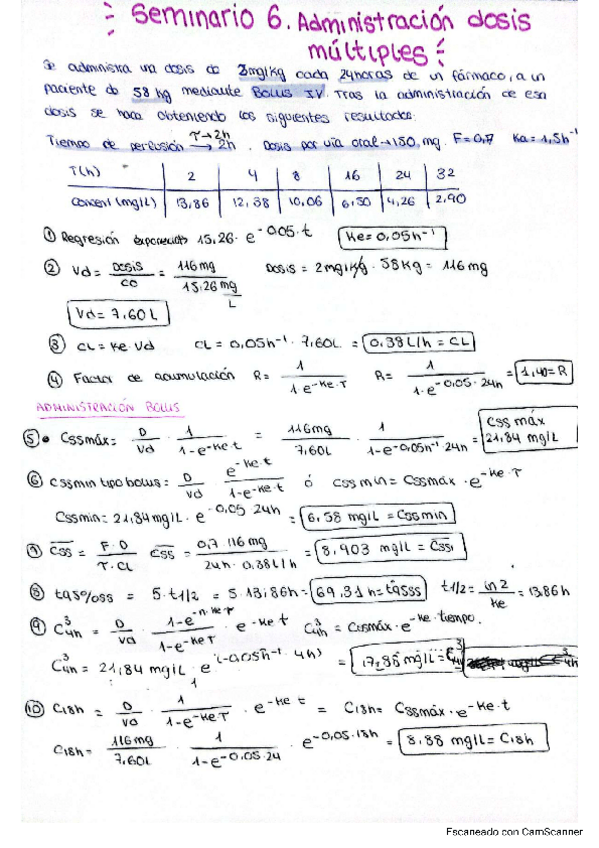 Seminario 6. Administración dosis
múltiples
Se administra una dosis de 3mg/Kg cada 24horas de un fármaco, a un
paciente de 58 kg mediante Bolus IV. Tras la administración de esa
dosis se hace obteniendo los siguientes resultados:
Tiempo de perfusión τ→2h → 2h . Dosis por vía oral → 150 mg. F=0,7 Ka = 1,5h⁻¹
T(h) 2 4 8 16 24 32
Concent (mg/L) 13,86 12,38 10,06 6,50 4,26 2,90
① Regresión exponencial 15,26 · e^-0,05·t Ke = 0,05h⁻¹
② Vd = Dosis/C0 = 116mg/15,26 mg/L Dosis = 2mg/kg · 58Kg = 116 mg
Vd = 7,60 L
③ CL = Ke · Vd CL = 0,05h⁻¹ · 7,60L = 0,38 L/h = CL
④ Factor de acumulación R = 1/1-e^-Ke·τ R = 1/1-e^-0,05·24h = 1,40 = R
ADMINISTRACIÓN BOLUS
⑤ • Cssmáx = D/Vd · 1/1-e^-Ke·t = 116mg/7,60L · 1/1-e^-0,05h⁻¹·24h = Css máx 21,84 mg/L
⑥ Cssmin tipo bolus = D/Vd · e^-Ke·t/1-e^-Ke·t ó Cssmín = Cssmáx · e^-Ke·τ
Cssmin = 21,84 mg/L · e^-0,05·24h = 6,58 mg/L = Cssmin
⑦ Css = F·D/τ·CL Css = 0,7·116mg/24h·0,38L/h = 8,903 mg/L = Css
⑧ tas%ss = 5·t1/2 = 5·13,86h = 69,31h = tass t1/2 = ln 2/Ke = 13,86h
⑨ C³4h = D/Vd · 1-e^-n·Ke·τ/1-e^-Ke·τ · e^-Ke·t C³4h = Cssmáx · e^-Ke·tiempo.
C³4h = 21,84 mg/L · e^(-0,05h⁻¹·4h) = 17,88 mg/L = C³4h
⑩ C18h = D/Vd · 1/1-e^-Ke·τ · e^-Ke·t = C18h = Cssmáx · e^-Ke·t
C18h = 116mg/7,60L · 1/1-e^-0,05·24 · e^-0,05·18h = 8,88 mg/L = C18h
Escaneado con CamScanner